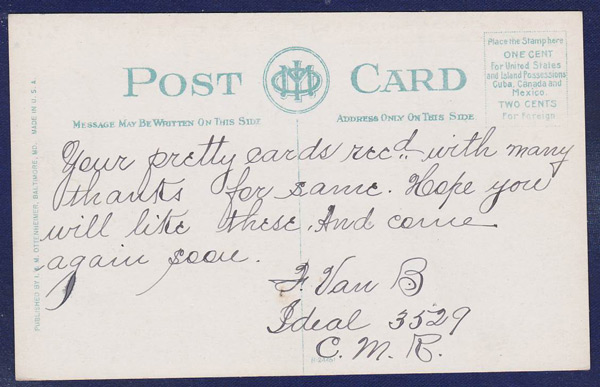 POST CARD
Place the Stamp here
ONE CENT
For United States
and Island Possessions
Cuba, Canada and
Mexico.
TWO CENTS
For Foreign
MESSAGE MAY BE WRITTEN ON THIS SIDE
ADDRESS ONLY ON THIS SIDE
PUBLISHED BY I. & M. OTTENHEIMER, BALTIMORE, MD. MADE IN U.S.A.
Your pretty cards rec'd. with many
thanks for same. Hope you
will like these. And come
again soon.
F. Van B
Ideal 3529
C. M. R.